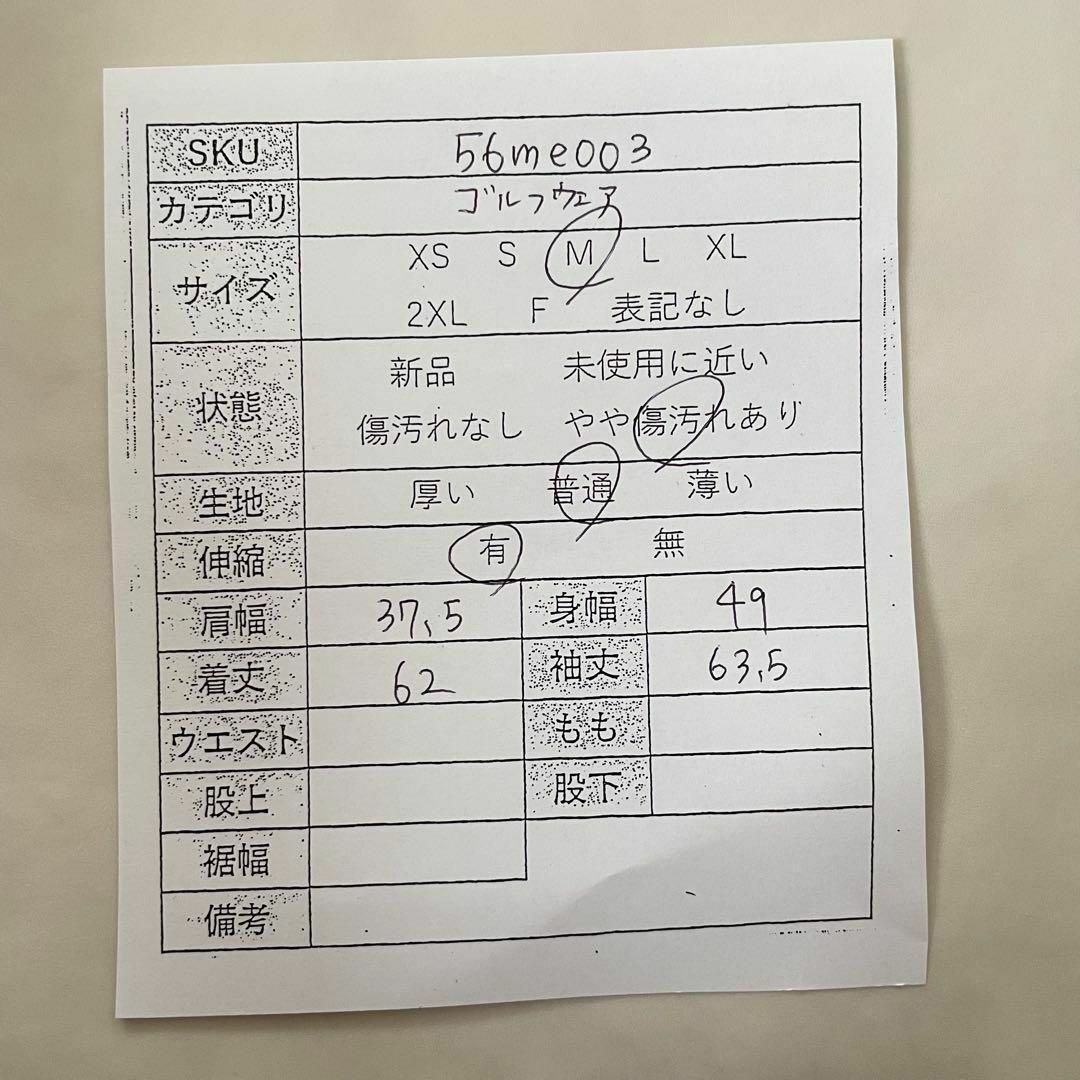 SKU 56me003
カテゴリ ゴルフウェア
サイズ XS S M L XL
2XL F 表記なし
状態 新品 未使用に近い
傷汚れなし やや傷汚れあり
生地 厚い 普通 薄い
伸縮 有 無
肩幅 37.5 身幅 49
着丈 62 袖丈 63.5
ウエスト もも
股上 股下
裾幅
備考